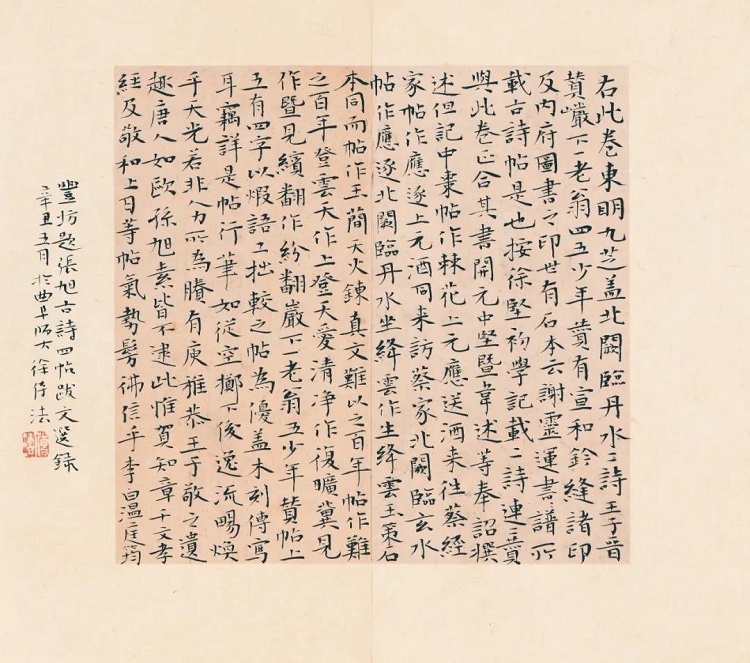 右此卷東明九芝盖北闕臨丹水二詩王子晋
贊巖下一老翁四五少年贊有宣和鈐縫諸印
及内府圖書之印世有石本云謝靈運書譜所
載古詩帖是也按徐堅初學記載二詩連二賛
與此卷正合其書開元中堅暨韋述等奉詔撰
述但記中棗帖作棘花上元應送酒来徃蔡經
家帖作應逐上元酒同来訪蔡家北闕臨玄水
帖作應逐北闕臨丹水坐絳雲作生絳雲玉策石
本同而帖作玉蕳天火鍊真文難以之百年帖作難
之百年登雲天作上登天愛清净作復曠冀見
作暨見繽翻作紛翻巖下一老翁五少年贊帖上
五有四字以煆語工拙較之帖為優盖木刻傳寫
耳竊詳是帖行筆如從空擲下後逸流暢焕
乎天光若非人力所為騰有庾雅恭王子敬之遺
趣唐人如歐徐旭素皆不逮此惟賀知章千文孝
經及敬和上日等帖氣勢髣佛信乎李白温庭筠
豐坊題張旭古詩四帖跋文選録
辛丑五月於曲阜師大徐偉法